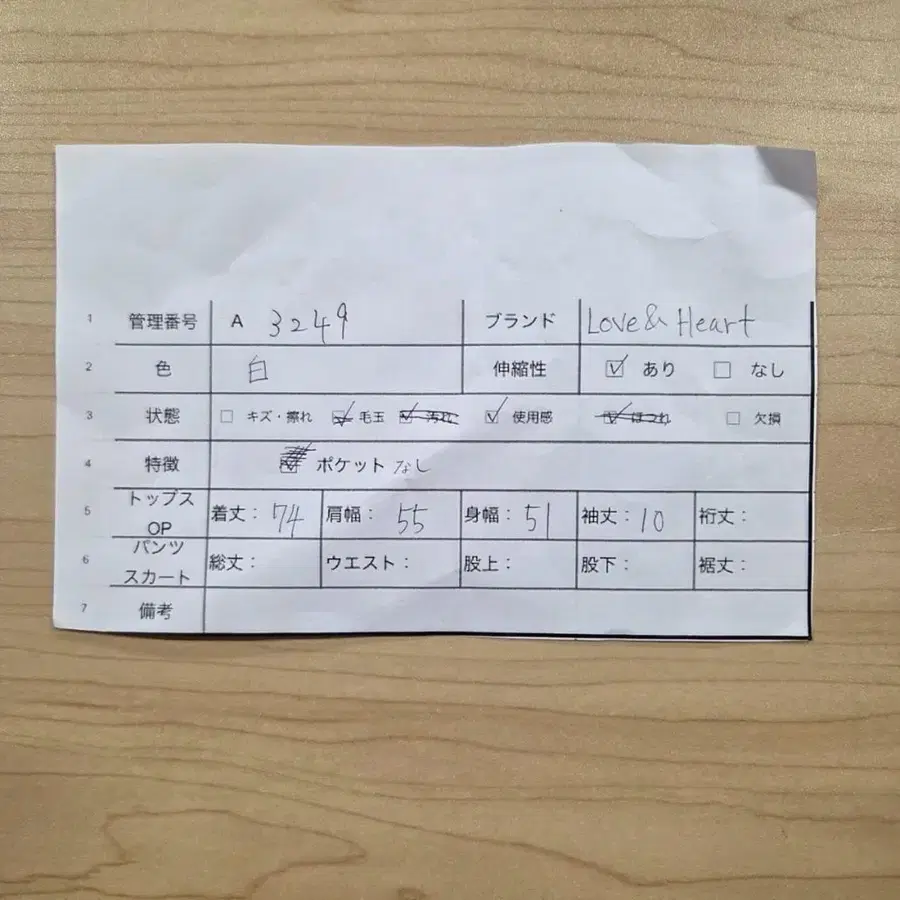 1 管理番号 A 3249 ブランド Love& Heart
2 色 白 伸縮性 ☑ あり ☐ なし
3 状態 ☐ キズ・擦れ ☑ 毛玉 ☑ 汚れ ☑ 使用感 ☑ ほつれ ☐ 欠損
4 特徴 ☑ ポケット なし
5 トップス OP 着丈: 74 肩幅: 55 身幅: 51 袖丈: 10 裄丈:
6 パンツ スカート 総丈: ウエスト: 股上: 股下: 裾丈:
7 備考